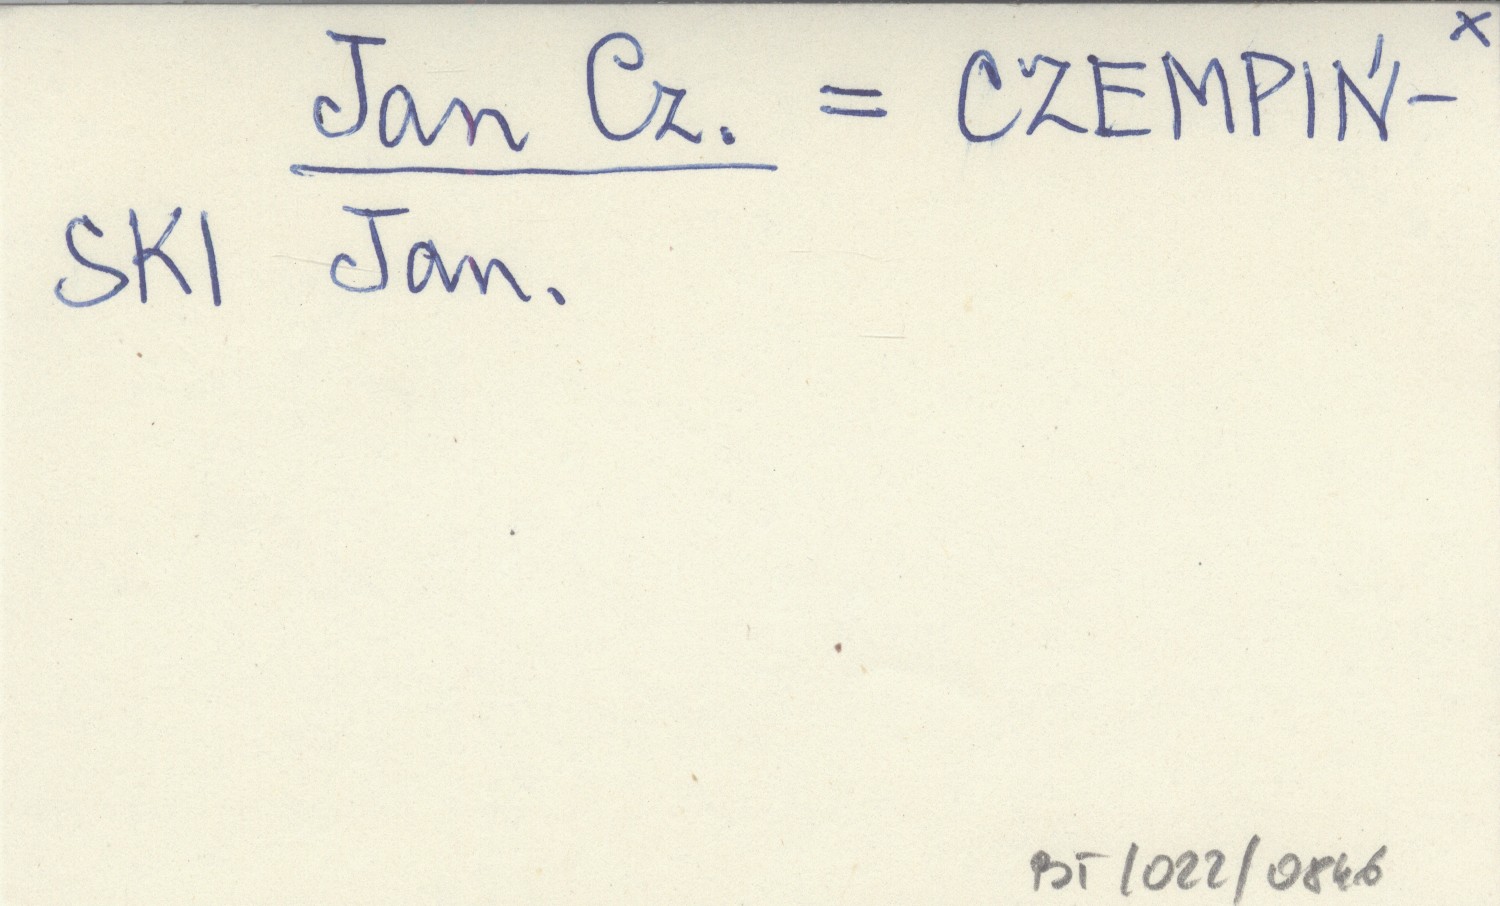 x
Jan Cz. = CZEMPIŃ-
SKI Jan.
BT/022/0846